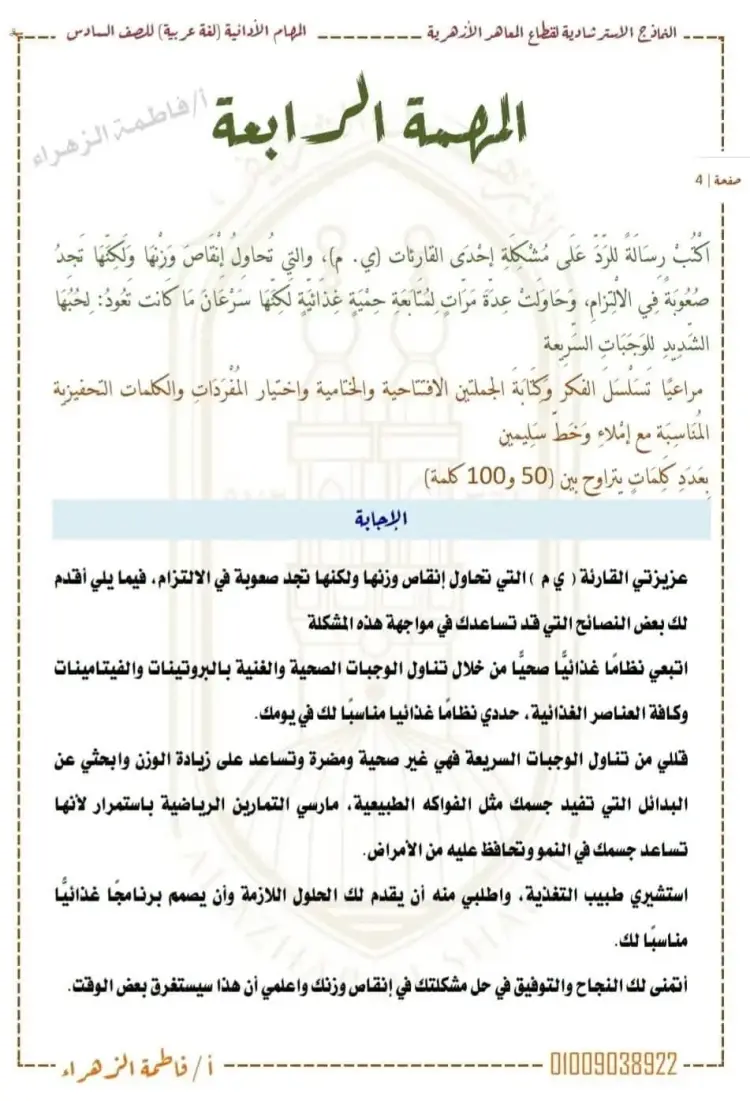 النماذج الاسترشادية لقطاع المعاهر الأزهرية
المهام الأدائية (لغة عربية) للصف السادس
أ/فاطمة الزهراء
المهمة الرابعة
صفحة | 4
اكْتُبْ رِسَالَةً للرَّدِّ عَلَى مُشْكِلَةِ إحْدَى القارئات (ي. م)، والتي تُحاولُ إنْقَاصَ وَزْنِهَا وَلَكِنَّهَا تَجدُ
صُعُوبَةً فِي الالْتِزامِ، وَحَاوَلَتْ عِدَّةَ مَرَّاتٍ لِمُتَابَعَةِ حِمْيَةٍ غذَائيَّةٍ لَكِنَّهَا سَرْعَانَ مَا كانت تَعُودُ: لِحُبِّهَا
الشَّدِيدِ للوَجَبَاتِ السَّرِيعة
مراعيًا تَسَلْسَلَ الفكر وكَتَابَةَ الجملتين الافتتاحية والختامية واختيار المُفْرَدَاتِ والكلمات التحفيزية
المُنَاسِبَة مع إمْلاءٍ وَخَطٍّ سَلِيمين
بِعَدَدِ كَلِمَاتٍ يتراوح بين (50 و100 كلمة)
الإجابة
عزيزتي القارئة ( ي م ) التي تحاول إنقاص وزنها ولكنها تجد صعوبة في الالتزام، فيما يلي أقدم
لك بعض النصائح التي قد تساعدك في مواجهة هذه المشكلة
اتبعي نظامًا غذائيًّا صحيًّا من خلال تناول الوجبات الصحية والغنية بالبروتينات والفيتامينات
وكافة العناصر الغذائية، حددي نظامًا غذائيا مناسبًا لك في يومك.
قللي من تناول الوجبات السريعة فهي غير صحية ومضرة وتساعد على زيادة الوزن وابحثي عن
البدائل التي تفيد جسمك مثل الفواكه الطبيعية، مارسي التمارين الرياضية باستمرار لأنها
تساعد جسمك في النمو وتحافظ عليه من الأمراض.
استشيري طبيب التغذية، واطلبي منه أن يقدم لك الحلول اللازمة وأن يصمم برنامجًا غذائيًّا
مناسبًا لك.
أتمنى لك النجاح والتوفيق في حل مشكلتك في إنقاص وزنك واعلمي أن هذا سيستغرق بعض الوقت.
أ/فاطمة الزهراء
01009038922